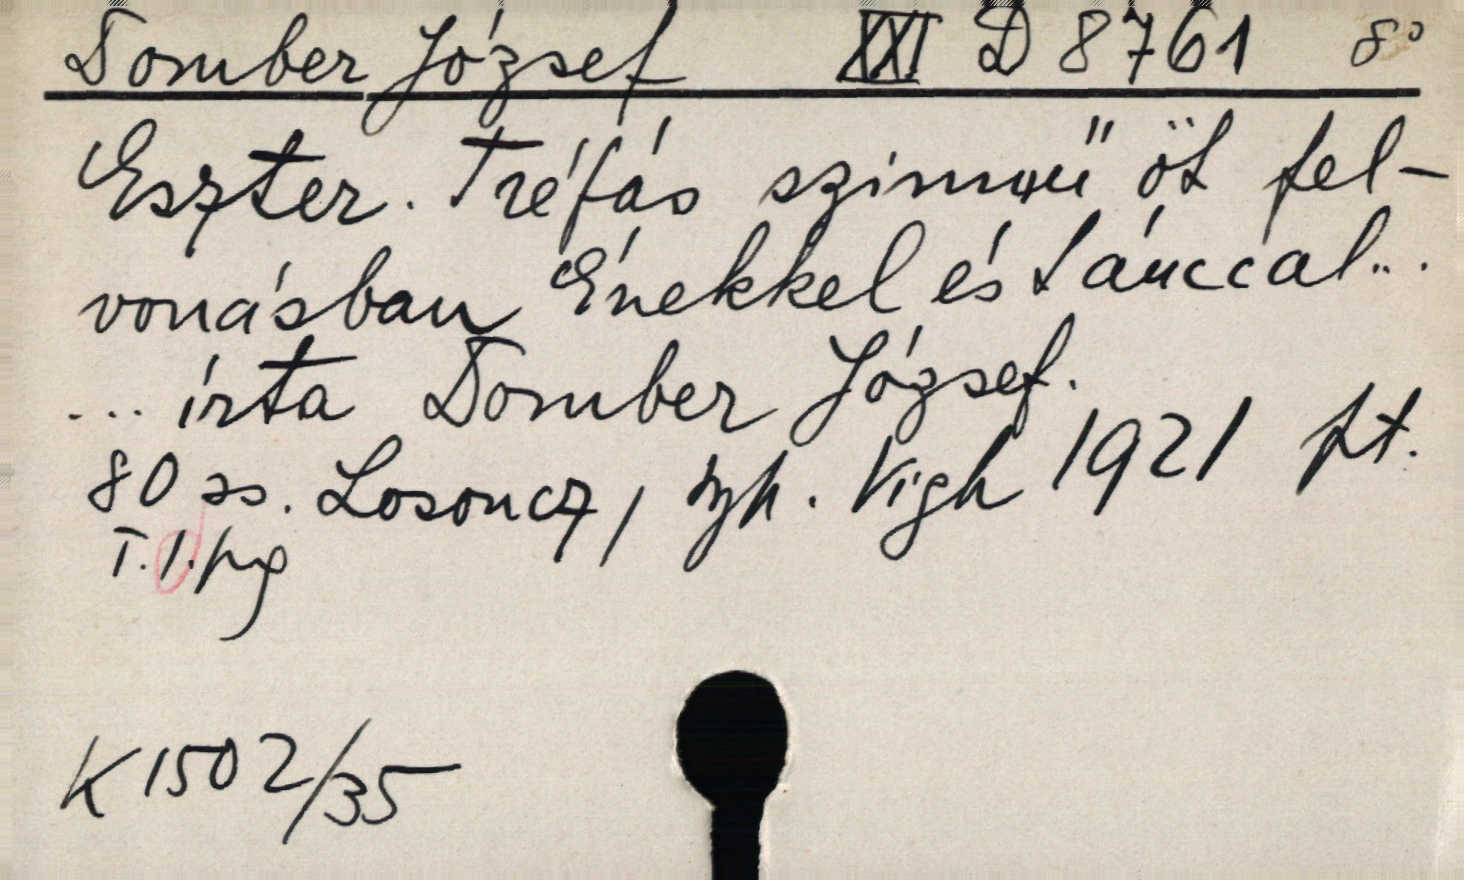 Domber József XXI D 8761 8°
Eszter. Tréfás szinmű öt fel-
vonásban Énekkel és tánccal...
... írta Domber József.
80 ss. Losoncz, nyh. Vigh 1921 ft.
T.I.
K 1502/35